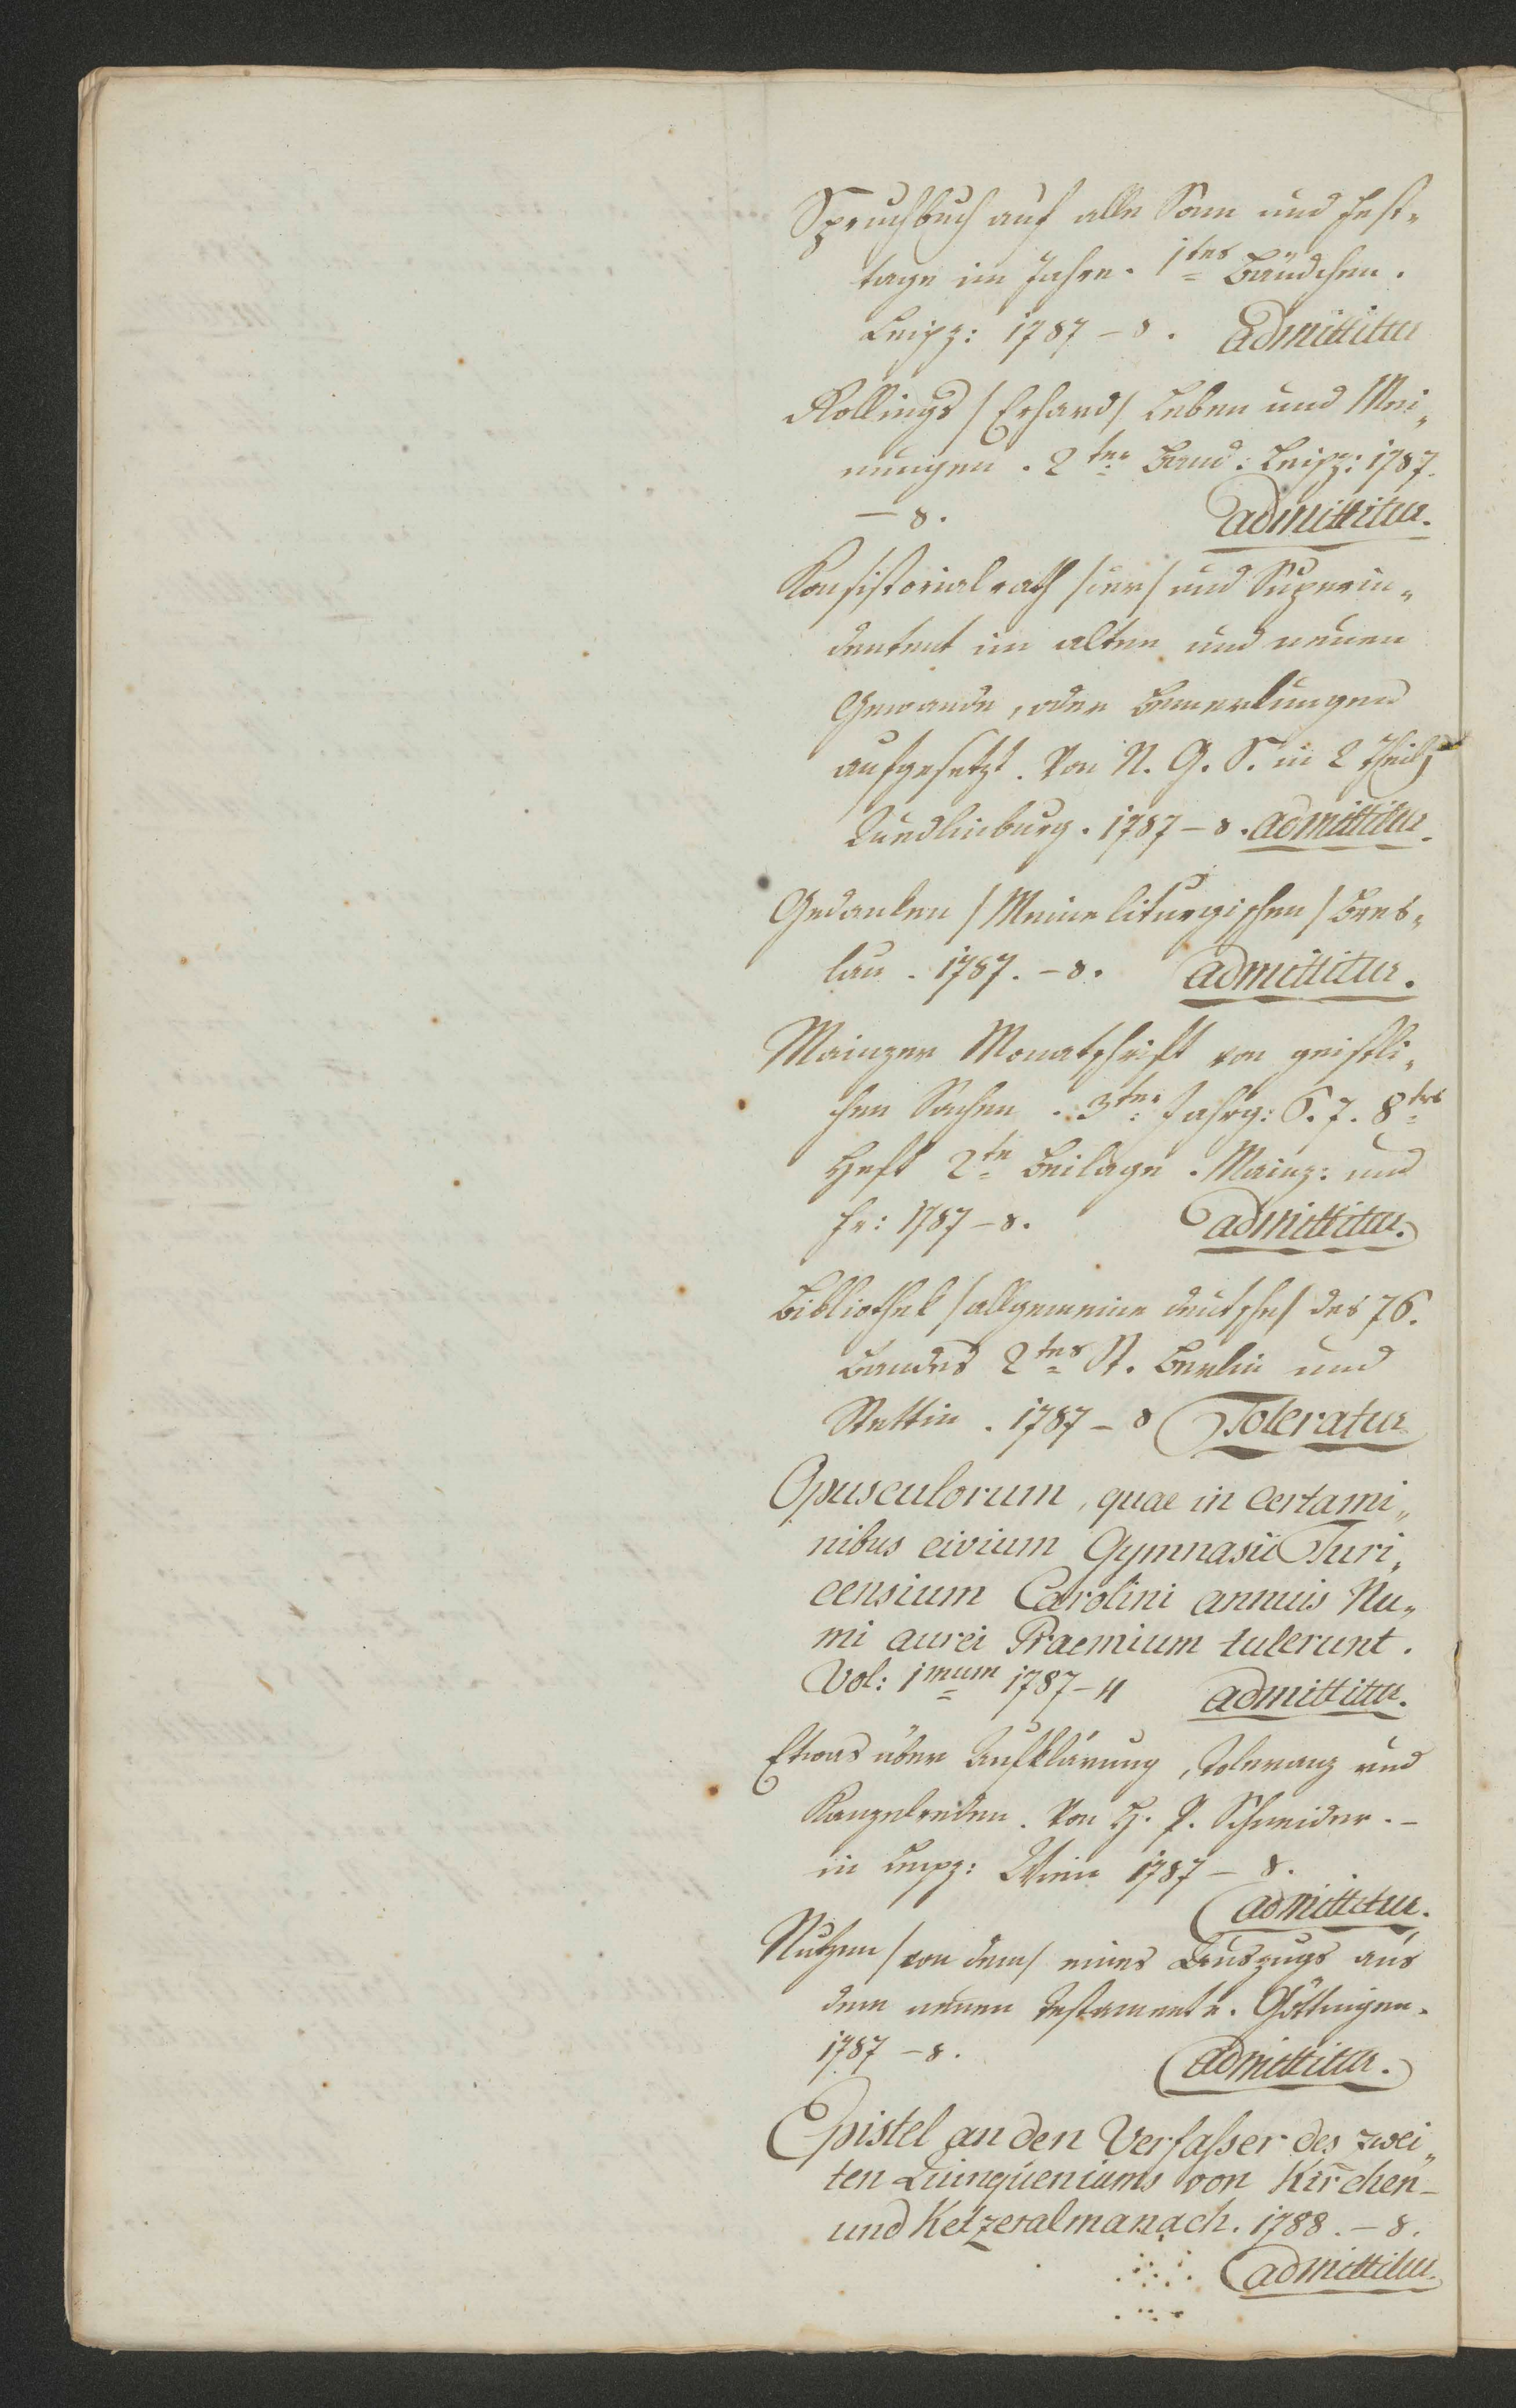 Spruchbuch auf alle Sonn und Fest„
tage im Jahre. 1tes Bändchen.
Leipz: 1787 – 8. Admittitur
Rollings /Erhard/ Leben und Mei„
nungen. 2ter Band: Leipz: 1787.
– 8. admittitur.
Konsistorialrath /der/ und Superin„
dentent im alten und neuen
Gewande, oder Bemerkungen
aufgesetzt. Von N. G. S. in 2 Theil
Quedlinburg. 1787 – 8. admittitur.
Gedanken /Meine liturgischen/ Bres„
lau. 1787. – 8. admittitur.
Mainzer Monatschrift von geistli„
chen Sachen. 3ter Jahrg: 6. 7. 8tes
Heft 2te Beilage. Mainz: und
Fr: 1787 – 8. admittitur.
Bibliothek /allgemeine deutsche/ des 76.
Bandes 2tes St. Berlin und
Stettin. 1787 – 8 Toleratur
Opusculorum, quae in certami„
nibus civium Gymnasii Turi„
censium Carolini annuis Nu„
mi aurei Praemium tulerunt.
Vol: 1mum 1787 – 4 admittitur.
Etwas über Aufklärung, Toleranz und
Kanzelreden. Von H. P. Schneider. –
in Leipz: Wien 1787 – 8.
admittitur.
Nutzen /von dem/ eines Auszugs aus
dem neuen Testamente. Göttingen.
1787 – 8. admittitur.
Epistel an den Verfasser des zwei„
ten Quinqueniums von Kirchen-
und Ketzeralmanach. 1788. – 8.
admittitur.